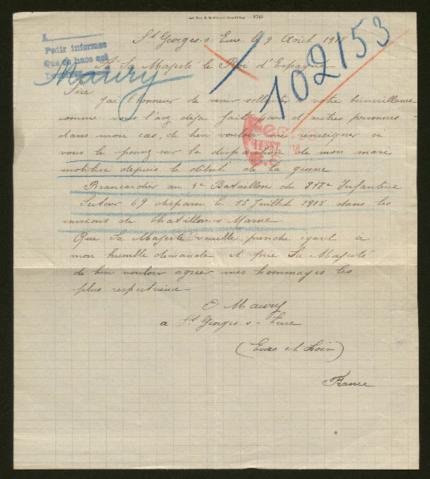 St Georges-s-Eure le 9 Août 1918
Pedir informes
102153
Maury
A Sa Majesté le Roi d'Espagne
Sire
J'ai l'honneur de venir solliciter votre bienveillance
comme vous l'avez déjà fait pour d'autres personnes
dans mon cas, de bien vouloir me renseigner si
vous le pouvez sur la disparition de mon mari
mobilisé depuis le début de la guerre
Brancardier au 1er Bataillon du 317e Infanterie
Secteur 69 disparu le 15 Juillet 1918 dans les
environs de Chatillon-s-Marne
Que Sa Majesté veuille prendre égard à
mon humble demande et prie Sa Majesté
de bien vouloir agréer mes hommages les
plus respectueux
Maury
a St Georges-s-Eure
(Eure et Loir)
France